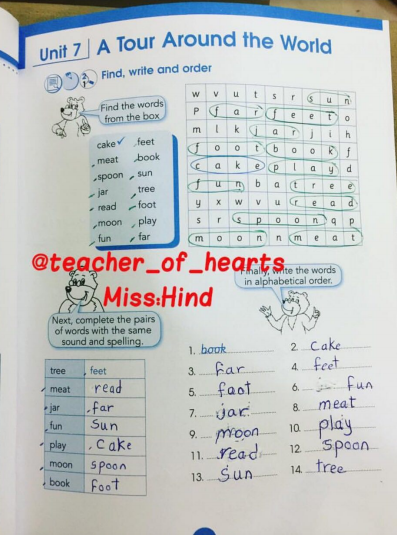 Unit 7 | A Tour Around the World
Find, write and order
Find the words
from the box
cake ✓ feet
meat book
spoon sun
jar tree
read foot
moon play
fun far
w v u t s r s u n
P f a r f e e t o
m l k j a r j i h
f o o t b o o k f
c a k e p l a y d
f u n b a t r e e
y x w v u r e a d
s r s p o o n q p
m o o n n m e a t
@teacher_of_hearts
Miss:Hind
Finally, write the words
in alphabetical order.
Next, complete the pairs
of words with the same
sound and spelling.
tree feet
meat read
jar far
fun Sun
play Cake
moon spoon
book foot
1. book
2. Cake
3. far
4. feet
5. foot
6. fun
7. jar
8. meat
9. moon
10. play
11. read
12. spoon
13. Sun
14. tree